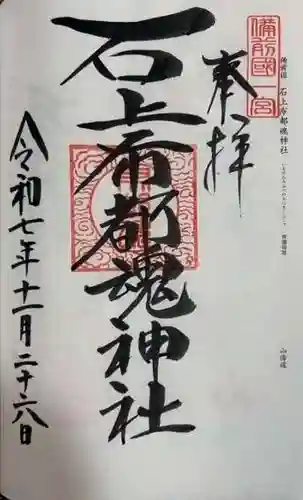 備前國一宮
奉拝
備前国 石上布都魂神社
石上布都魂神社
令和七年十一月二十六日